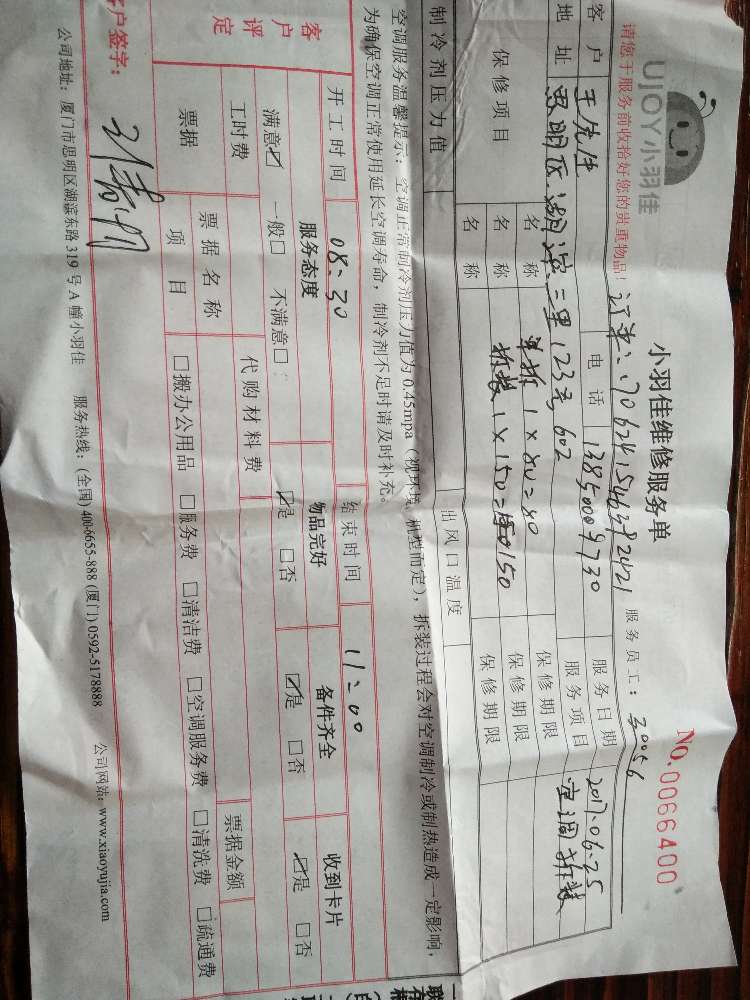 UJOY小羽佳
小羽佳维修服务单
No.0066400
请您于服务前收拾好您的贵重物品！
订单：706241546392421
服务员工：30056
客户 王先生 电话 13850009730 服务日期 2017.06.25
地址 思明区湖滨三里123号602 服务项目 空调拆装
保修项目 名称 单拆1×80=80 保修期限
名称 拆装1×150=150 保修期限
名称 保修期限
制冷剂压力值 出风口温度
空调服务温馨提示：空调正常制冷剂压力值为0.45mpa（视环境、机型而定），拆装过程会对空调制冷或制热造成一定影响，
为确保空调正常使用延长空调寿命，制冷剂不足时请及时补充。
开工时间 08:30 结束时间 11:00
客户评定 服务态度 物品完好 备件齐全 收到卡片
满意☑ 一般□ 不满意□ ☑是 □否 ☑是 □否 ☑是 □否
工时费 代购材料费 票据金额
票据 票据名称
项目 □搬办公用品 □服务费 □清洁费 □空调服务费 □清洗费 □疏通费
客户签字：
公司地址：厦门市思明区湖滨东路319号A幢小羽佳 服务热线：(全国) 400-6655-888 (厦门) 0592-5178888 公司网站：www.xiaoyujia.com